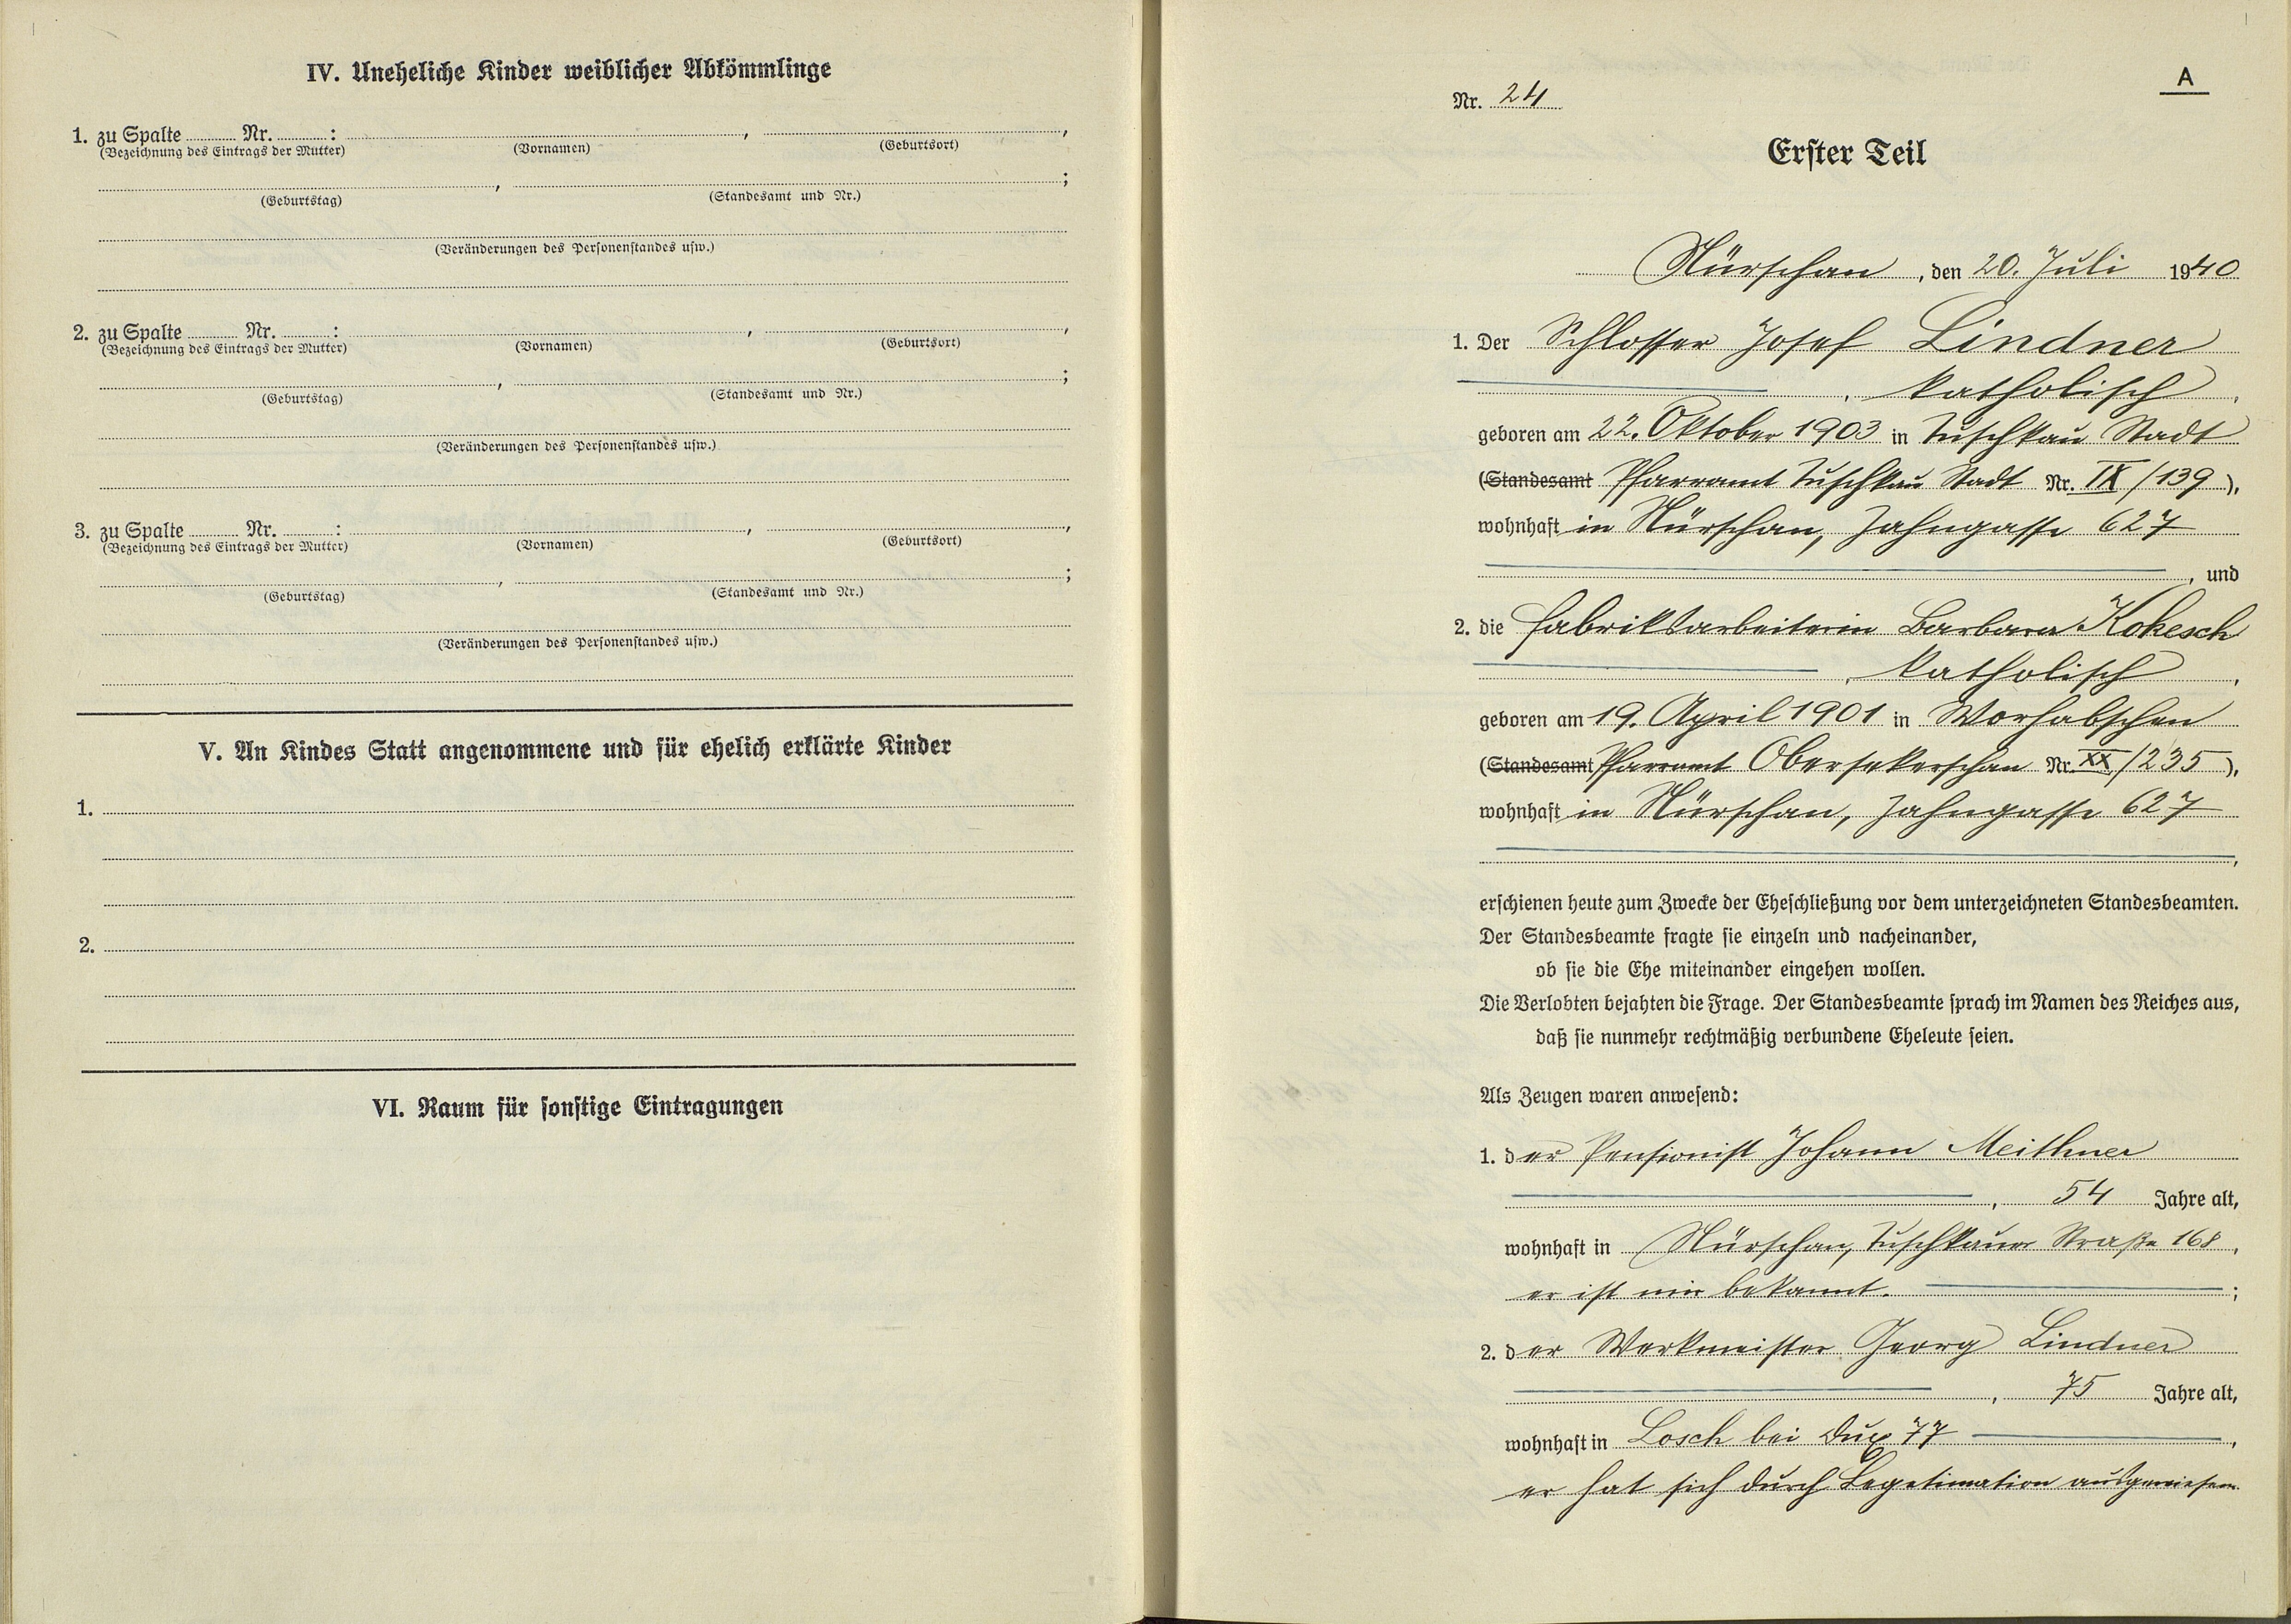 IV. Uneheliche Kinder weiblicher Abkömmlinge
1. zu Spalte ........ Nr. ........ : ........ , ........ ,
(Bezeichnung des Eintrags der Mutter) (Vornamen) (Geburtsort)
........ , ........ ;
(Geburtstag) (Standesamt und Nr.)
(Veränderungen des Personenstandes usw.)
2. zu Spalte ........ Nr. ........ : ........ , ........ ,
(Bezeichnung des Eintrags der Mutter) (Vornamen) (Geburtsort)
........ , ........ ;
(Geburtstag) (Standesamt und Nr.)
(Veränderungen des Personenstandes usw.)
3. zu Spalte ........ Nr. ........ : ........ , ........ ,
(Bezeichnung des Eintrags der Mutter) (Vornamen) (Geburtsort)
........ , ........ ;
(Geburtstag) (Standesamt und Nr.)
(Veränderungen des Personenstandes usw.)
V. An Kindes Statt angenommene und für ehelich erklärte Kinder
1.
2.
VI. Raum für sonstige Eintragungen
A
Nr. 24
Erster Teil
Nürschan, den 20. Juli 1940
1. Der Schlosser Josef Lindner
, katholisch,
geboren am 22. Oktober 1903 in Tuschkau Stadt
(Standesamt Pfarramt Tuschkau Stadt Nr. IX/139),
wohnhaft in Nürschan, Jahngasse 627
, und
2. die Fabriksarbeiterin Barbara Kokesch
, katholisch,
geboren am 19. April 1901 in Worhabschen
(Standesamt Pfarramt Obersekerschan Nr. XX/235),
wohnhaft in Nürschan, Jahngasse 627
,
erschienen heute zum Zwecke der Eheschließung vor dem unterzeichneten Standesbeamten.
Der Standesbeamte fragte sie einzeln und nacheinander,
ob sie die Ehe miteinander eingehen wollen.
Die Verlobten bejahten die Frage. Der Standesbeamte sprach im Namen des Reiches aus,
daß sie nunmehr rechtmäßig verbundene Eheleute seien.
Als Zeugen waren anwesend:
1. der Pensionist Johann Meithner
, 54 Jahre alt,
wohnhaft in Nürschan, Tuschkauer Straße 168,
er ist mir bekannt. ;
2. der Werkmeister Georg Lindner
, 75 Jahre alt,
wohnhaft in Losch bei Dux 77,
er hat sich durch Legetimation ausgewiesen.